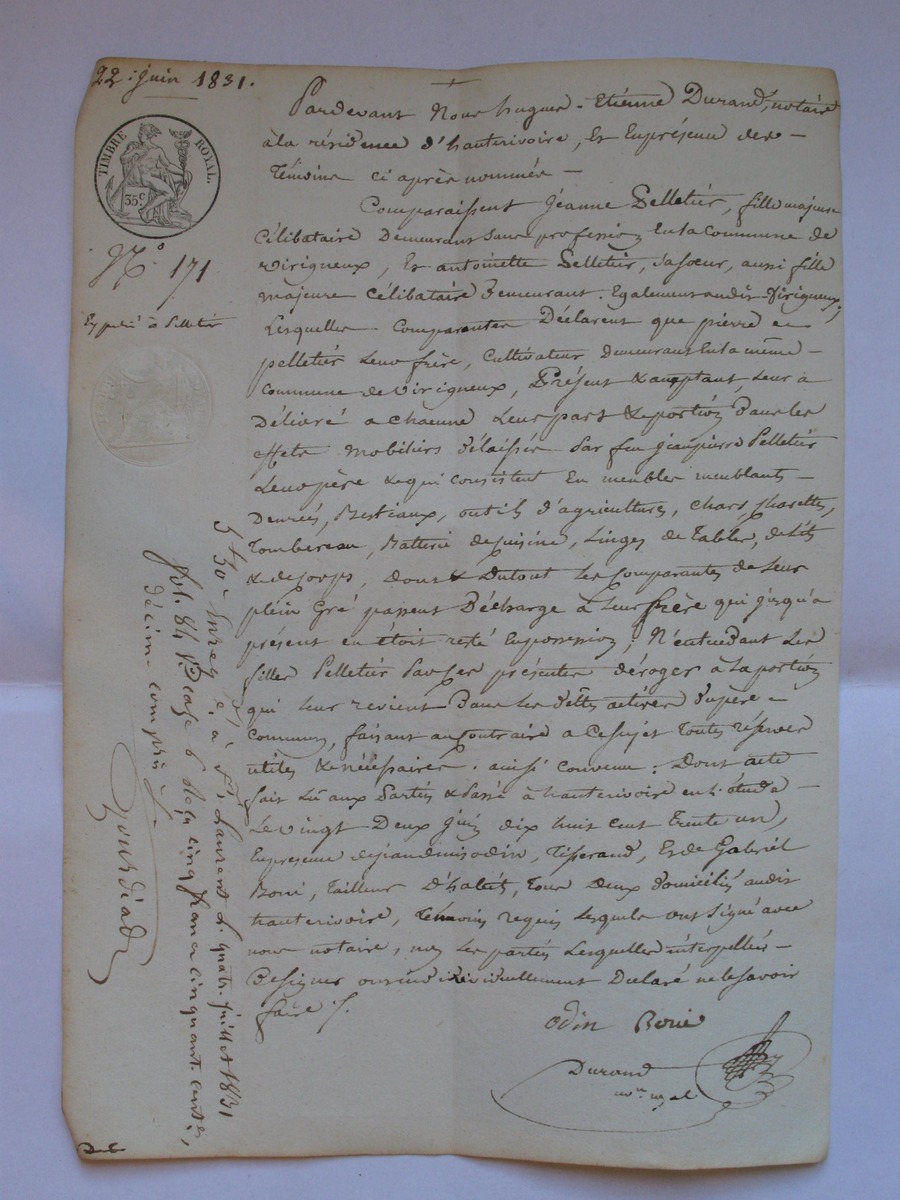 22 juin 1831.
TIMBRE ROYAL.
35 c.
N.° 171
Expedié à Pelletier
Pardevant Nous hugues-Etiénne Durand, notaire
à la résidence d'hauterivoire, Et Enprésence des
Témoins ci après nommés
Comparaissent Jéanne Pelletiér, fille majeure
Célibataire Demeurant sans profession Enla Commune de
virigneux, Et antoinette Pelletiér, sa soeur, aussi fille
majeure Célibataire Demeurant Egalement audit Virigneux;
Lesquelles Comparantes Déclarent que pierre
pelletiér Leur frère, Cultivateur Demeurant Enla même
Commune de virigneux, Présent & acceptant, leur a
Délivré a chacune Leurs part & portion Dans les
effets mobiliérs Délaissés Par feu jéanpierre Pelletiér
Leur père & qui Consistent En meubles meublants
Denrées, Bestiaux, outils d'agriculture, chars, charettes,
Tombereau, Batterie de Cuisine, Linges de Table, de Lit
& de Corps, Dont & Du tout les Comparantes de Leur
plein Gré passent Décharge à Leur frère qui jusqu'a
présent en étoit resté En possession; N'entendant Les
filles Pelletiér Par Ces présentes déroger à La portion
qui leur revient Dans les Dettes actives Du père
Commun, faisant au Contraire a Ce sujet Toutes réserves
utiles & nécéssaires. ainsi Convenu; Dont acte
fait Lu aux Parties & Passé à hauterivoire en l'étude
Le vingt Deux juin dix huit Cent Trente un,
Enpresence de jéandenis odin, Tisserand, Et de Gabriél
Boni, Tailleur D'habits, Tous Deux Domiciliés audit
hauterivoire, Témoins requis Lesquels ont Signé avec
nous notaire, non les parties Lesquelles intérpellées
De signer ont individuellement Déclaré ne le savoir
faire /.
odin
Durand
Enreg.é à St Laurent le quatre juillet 1831
fol. 84 V.o case 6 reçu cinq francs cinquante centes,
décime compris